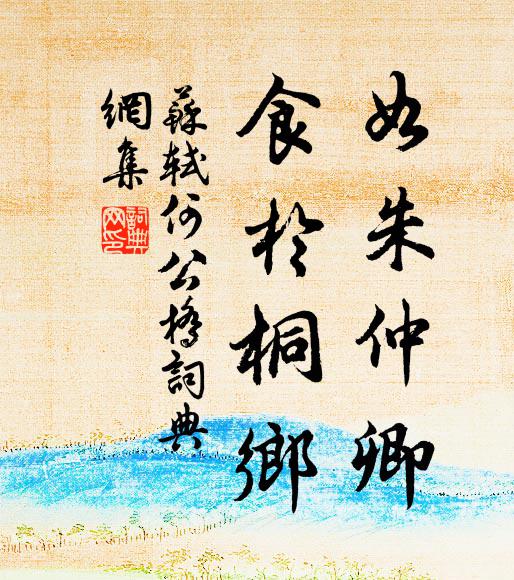 如朱仲卿
食於桐鄉
蘇軾何公橋詞典
網集
詞典
网印